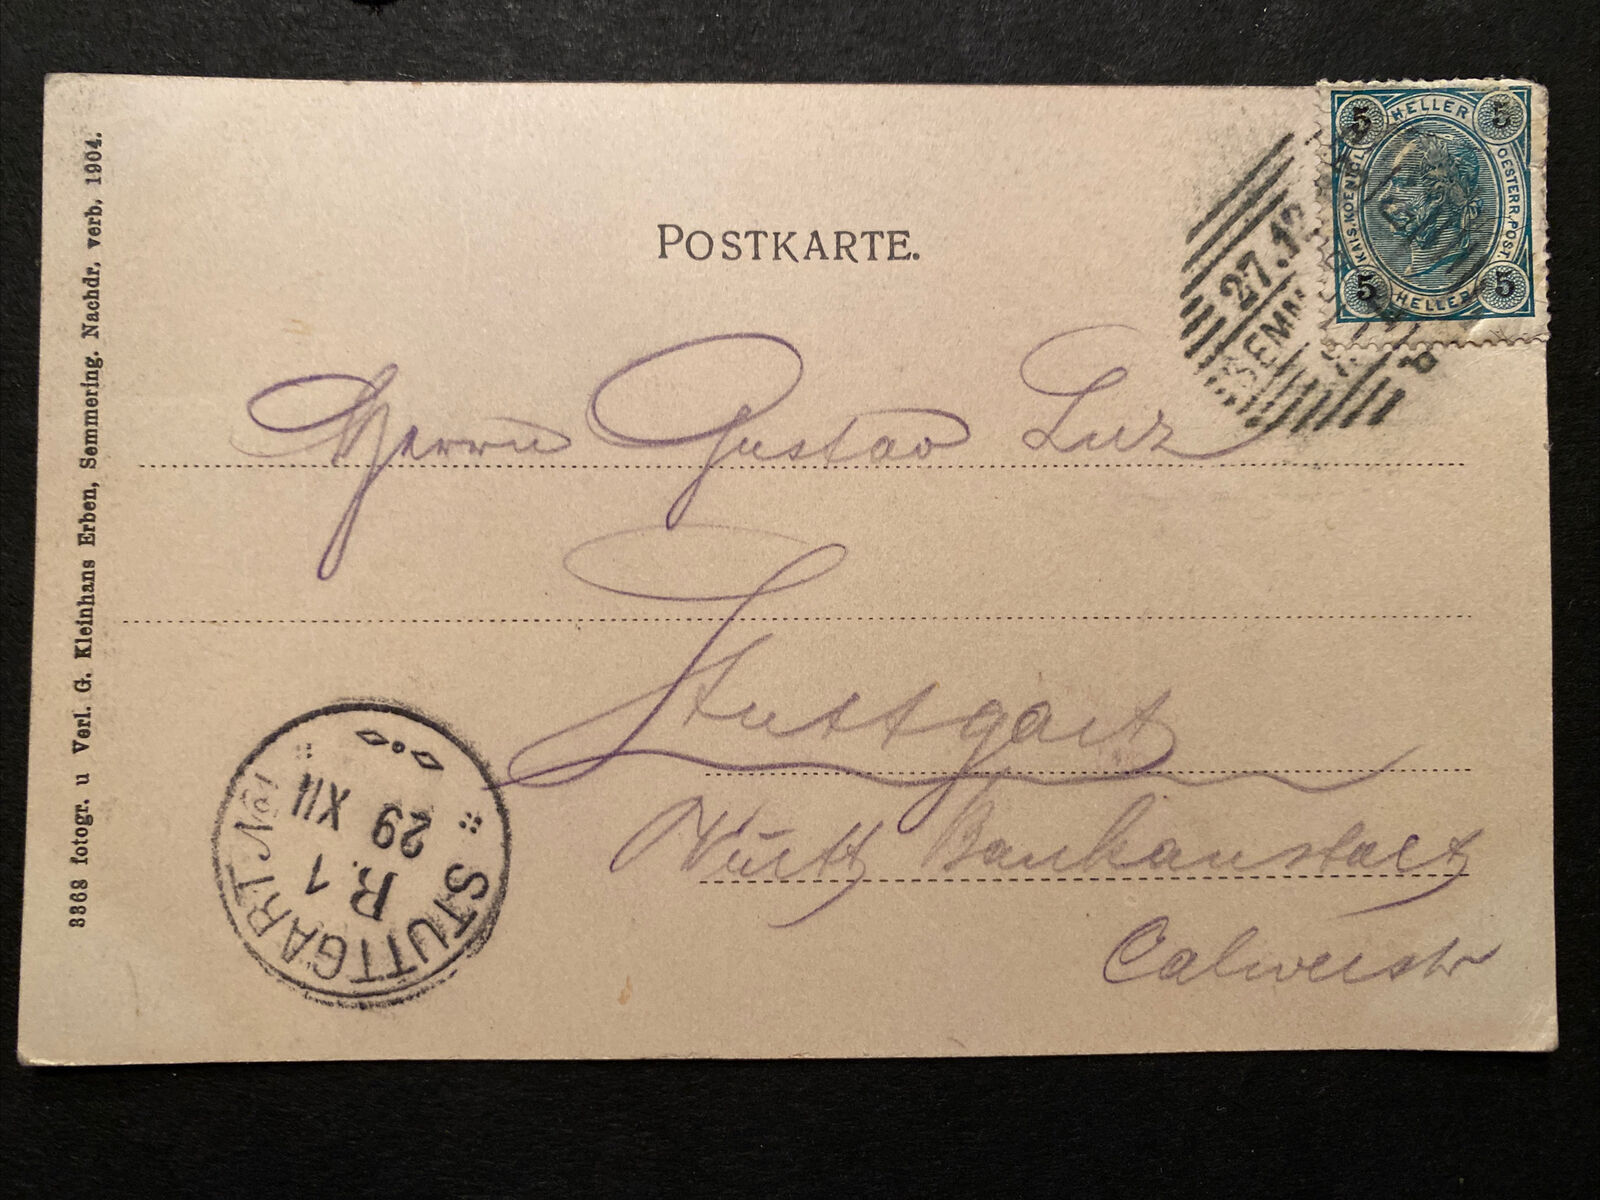 POSTKARTE.
5 HELLER 5
KAIS. KOENIGL.
OESTERR. POST.
5 HELLER 5
27.12
SEMM
Herrn Gustav Luz
Stuttgart
Württ Bankanstalt
Calwerstr
STUTTGART No1
P. 1
29 XII
3368 fotogr. u Verl. G. Kleinhans Erben, Semmering. Nachdr, verb, 1904.